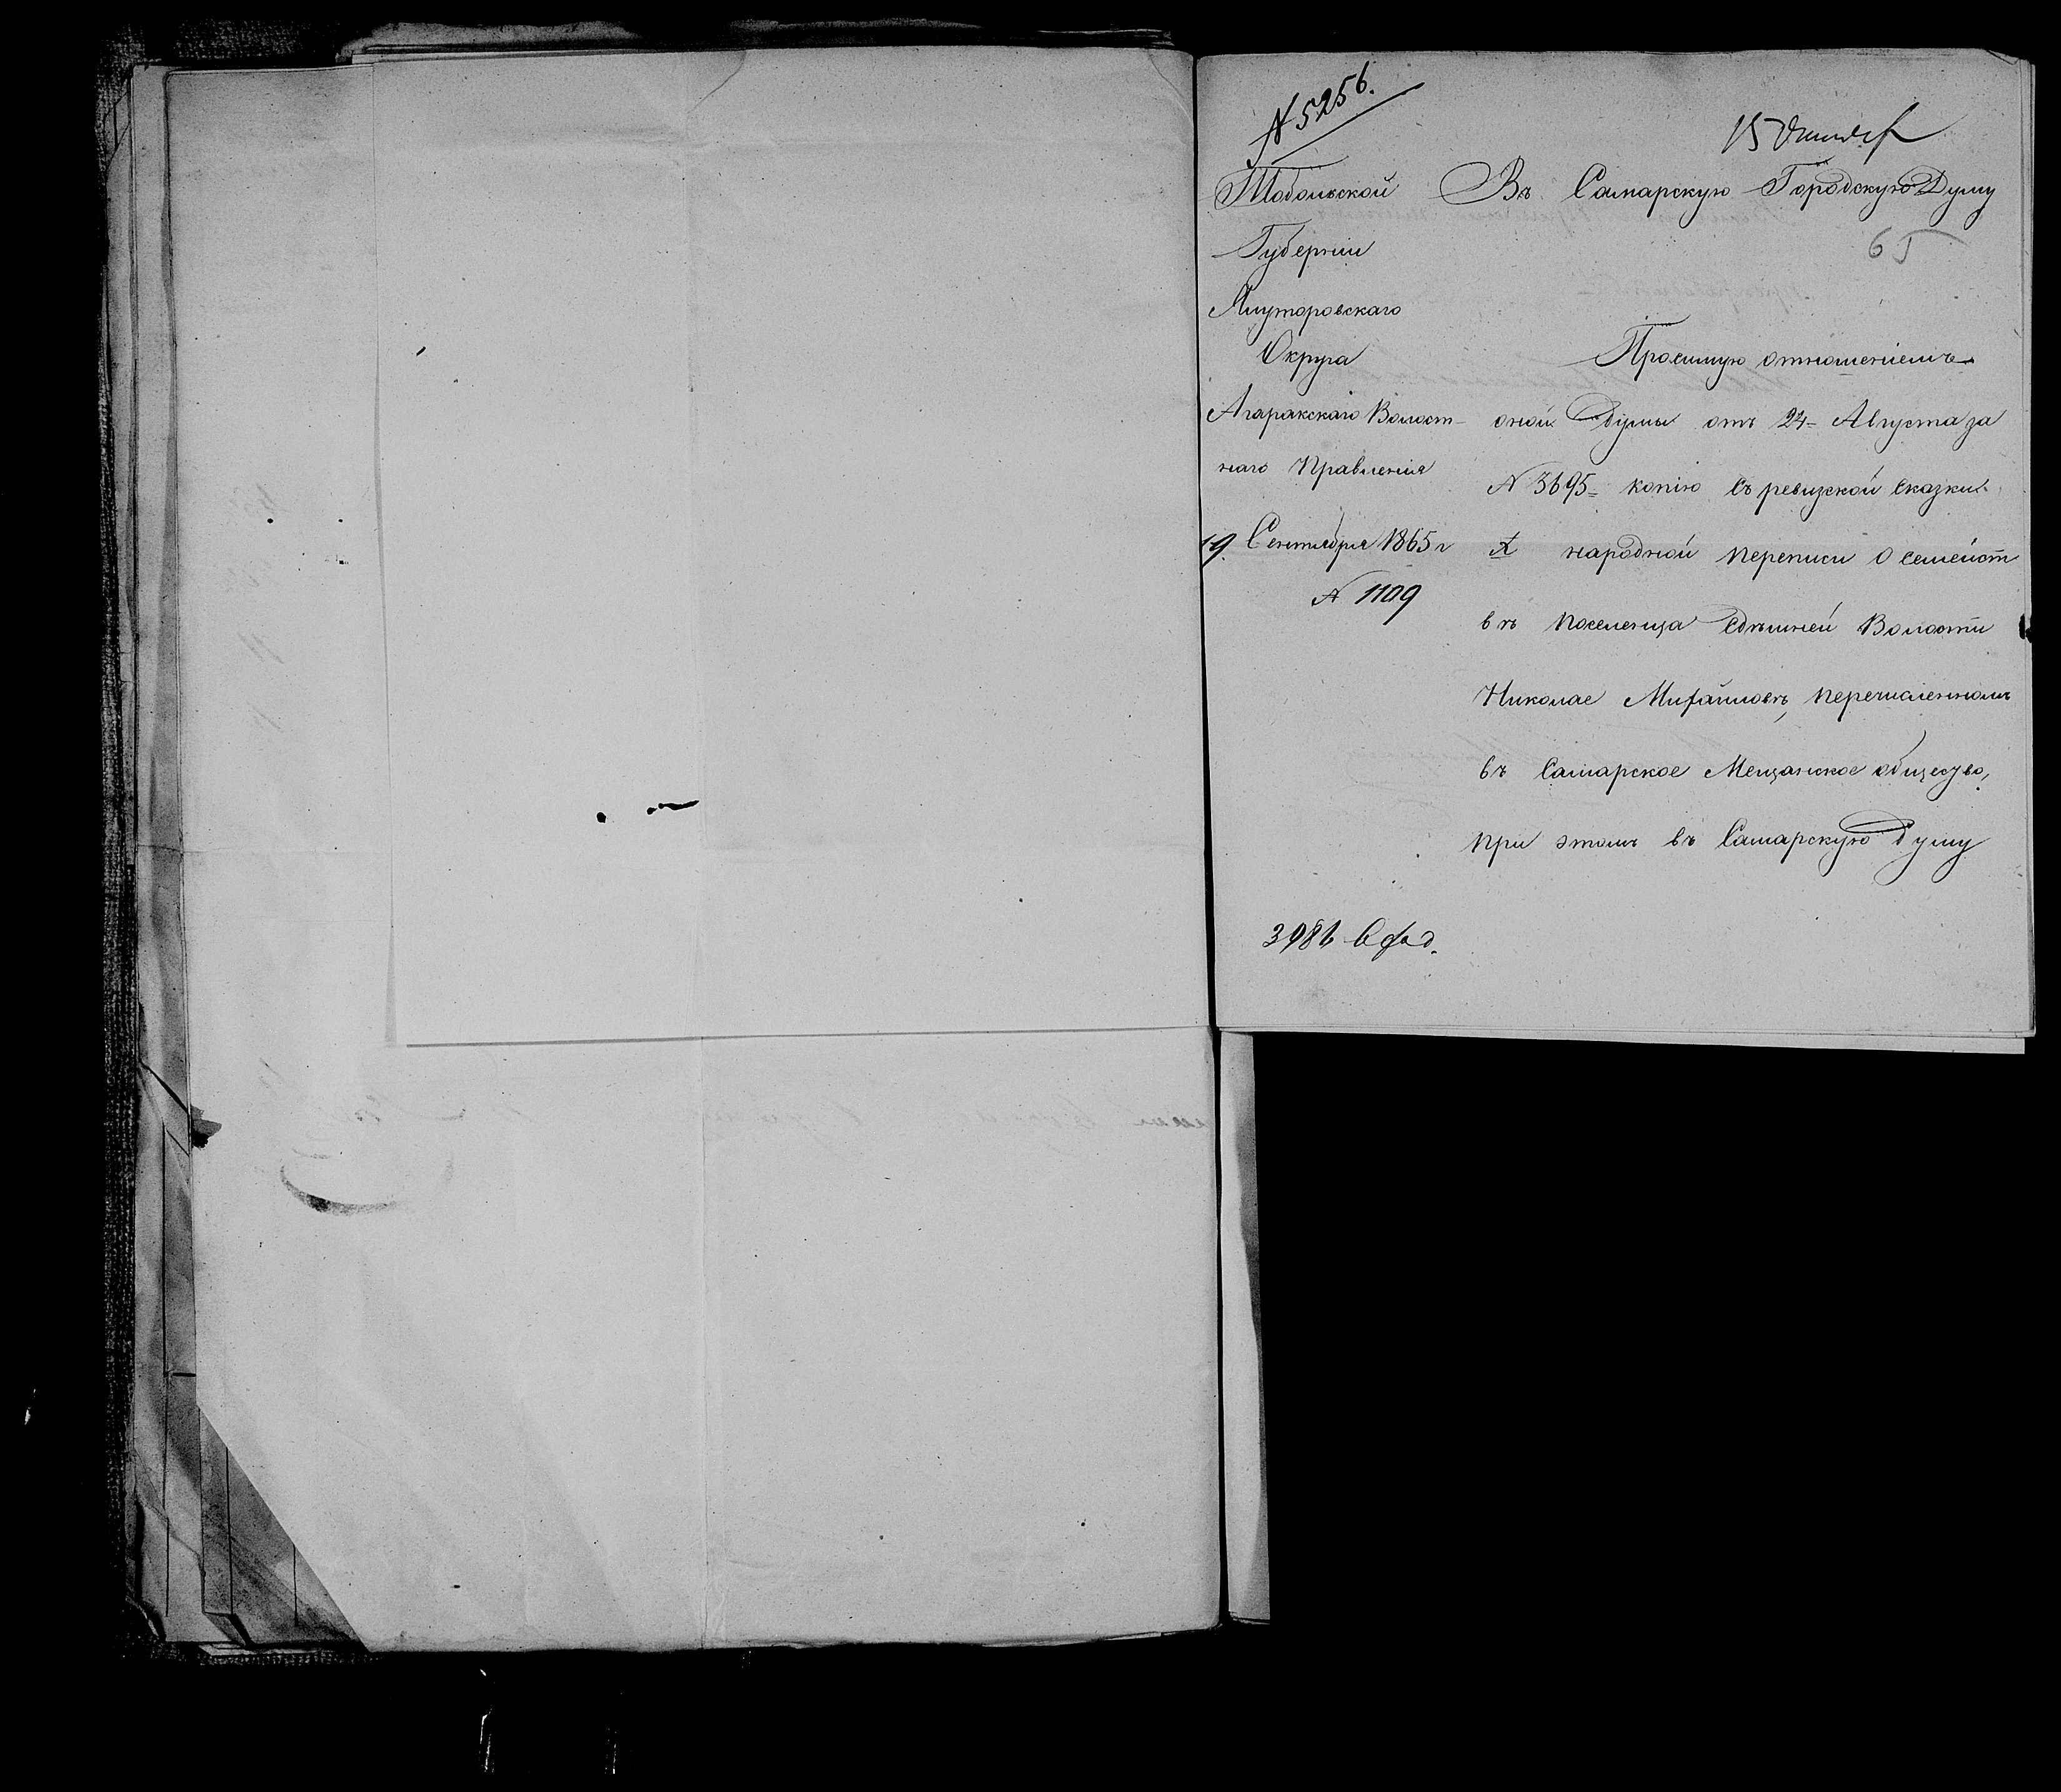 № 5256.
15 Октяб
Тобольской
Губернии
Ялуторовскаго
Округа
Агаракскаго Волост-
наго Правления
19. Сентября 1865 г
№ 1109
Въ Самарскую Городскую Думу
65
Просимую отношениемъ
оной Думы отъ 24 Августа за
№ 3695 копiю съ ревизской сказки
X народной переписи о семейст
вѣ поселенца здѣшней Волости
Николае Михайловѣ, перечисленномъ
въ Самарское Мещанское общество,
при этомъ въ Самарскую Думу